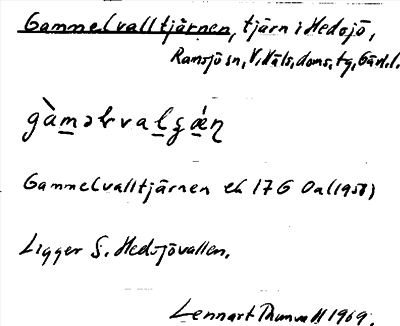 Gammelvalltjärnen, tjärn i Hedsjö,
Ramsjö sn, V. Häls. doms. tg, Gävl. l.
gàməlvalʂæ̀ɳ
Gammelvalltjärnen ek 17G Oa (1958)
Ligger S. Hedsjövallen.
Lennart Thunwall 1969.